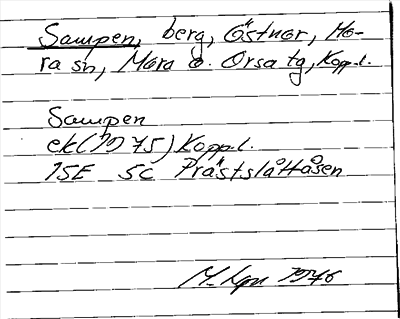 Sampen, berg, Östnor, Mo-
ra sn, Mora o. Orsa tg, Kopp.l.
Sampen
ek (1975) Kopp.l.
15E 5c Prästslåttåsen
1976